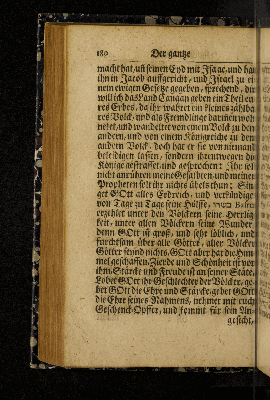 180 Der gantze
macht hat, uñ seinen Eyd mit Isaac, und hat
ihn in Jacob auffgericht, und Israel zu ei-
nem ewigen Gesetze gegeben, sprechend, dir
will ich das Land Canaan geben ein Theil eu-
res Erbes, da ihr wahret ein kleines zählba-
res Volck, und als Fremdlinge darinnen woh-
netet, und wandeltet von einem Volck zu dem
andern, und von einem Königreich zu dem
andern Volck, doch hat er sie von niemand
beleidigen lassen, sondern ihrentwegen die
Könige gestraffet, und gesprochen: Ihr solt
nicht anrühren meine Gesalbten, und meinen
Propheten solt ihr nichts übels thun; Sin-
get GOtt alles Erdreich, und verkündige
von Tage zu Tage seine Hülffe,
erzehlet unter den Völckern seine Herrlig-
keit, unter allen Völckern seine Wunder,
denn GOtt ist groß, und sehr löblich, und
furchtsam über alle Götter, aller Völcker
Götter seynd nichts, GOtt aber hat die Him-
mel geschaffen, Zierde und Schönheit ist vor
ihm, Stärcke und Freude ist an seiner Stäte,
Lobet GOtt ihr Geschlechter der Völcker, ge-
bet GOtt die Ehre und Stärcke, gebet GOtt
die Ehre seines Nahmens, nehmet mit euch
Geschenck-Opffer, und kommt für sein An-
gesicht,